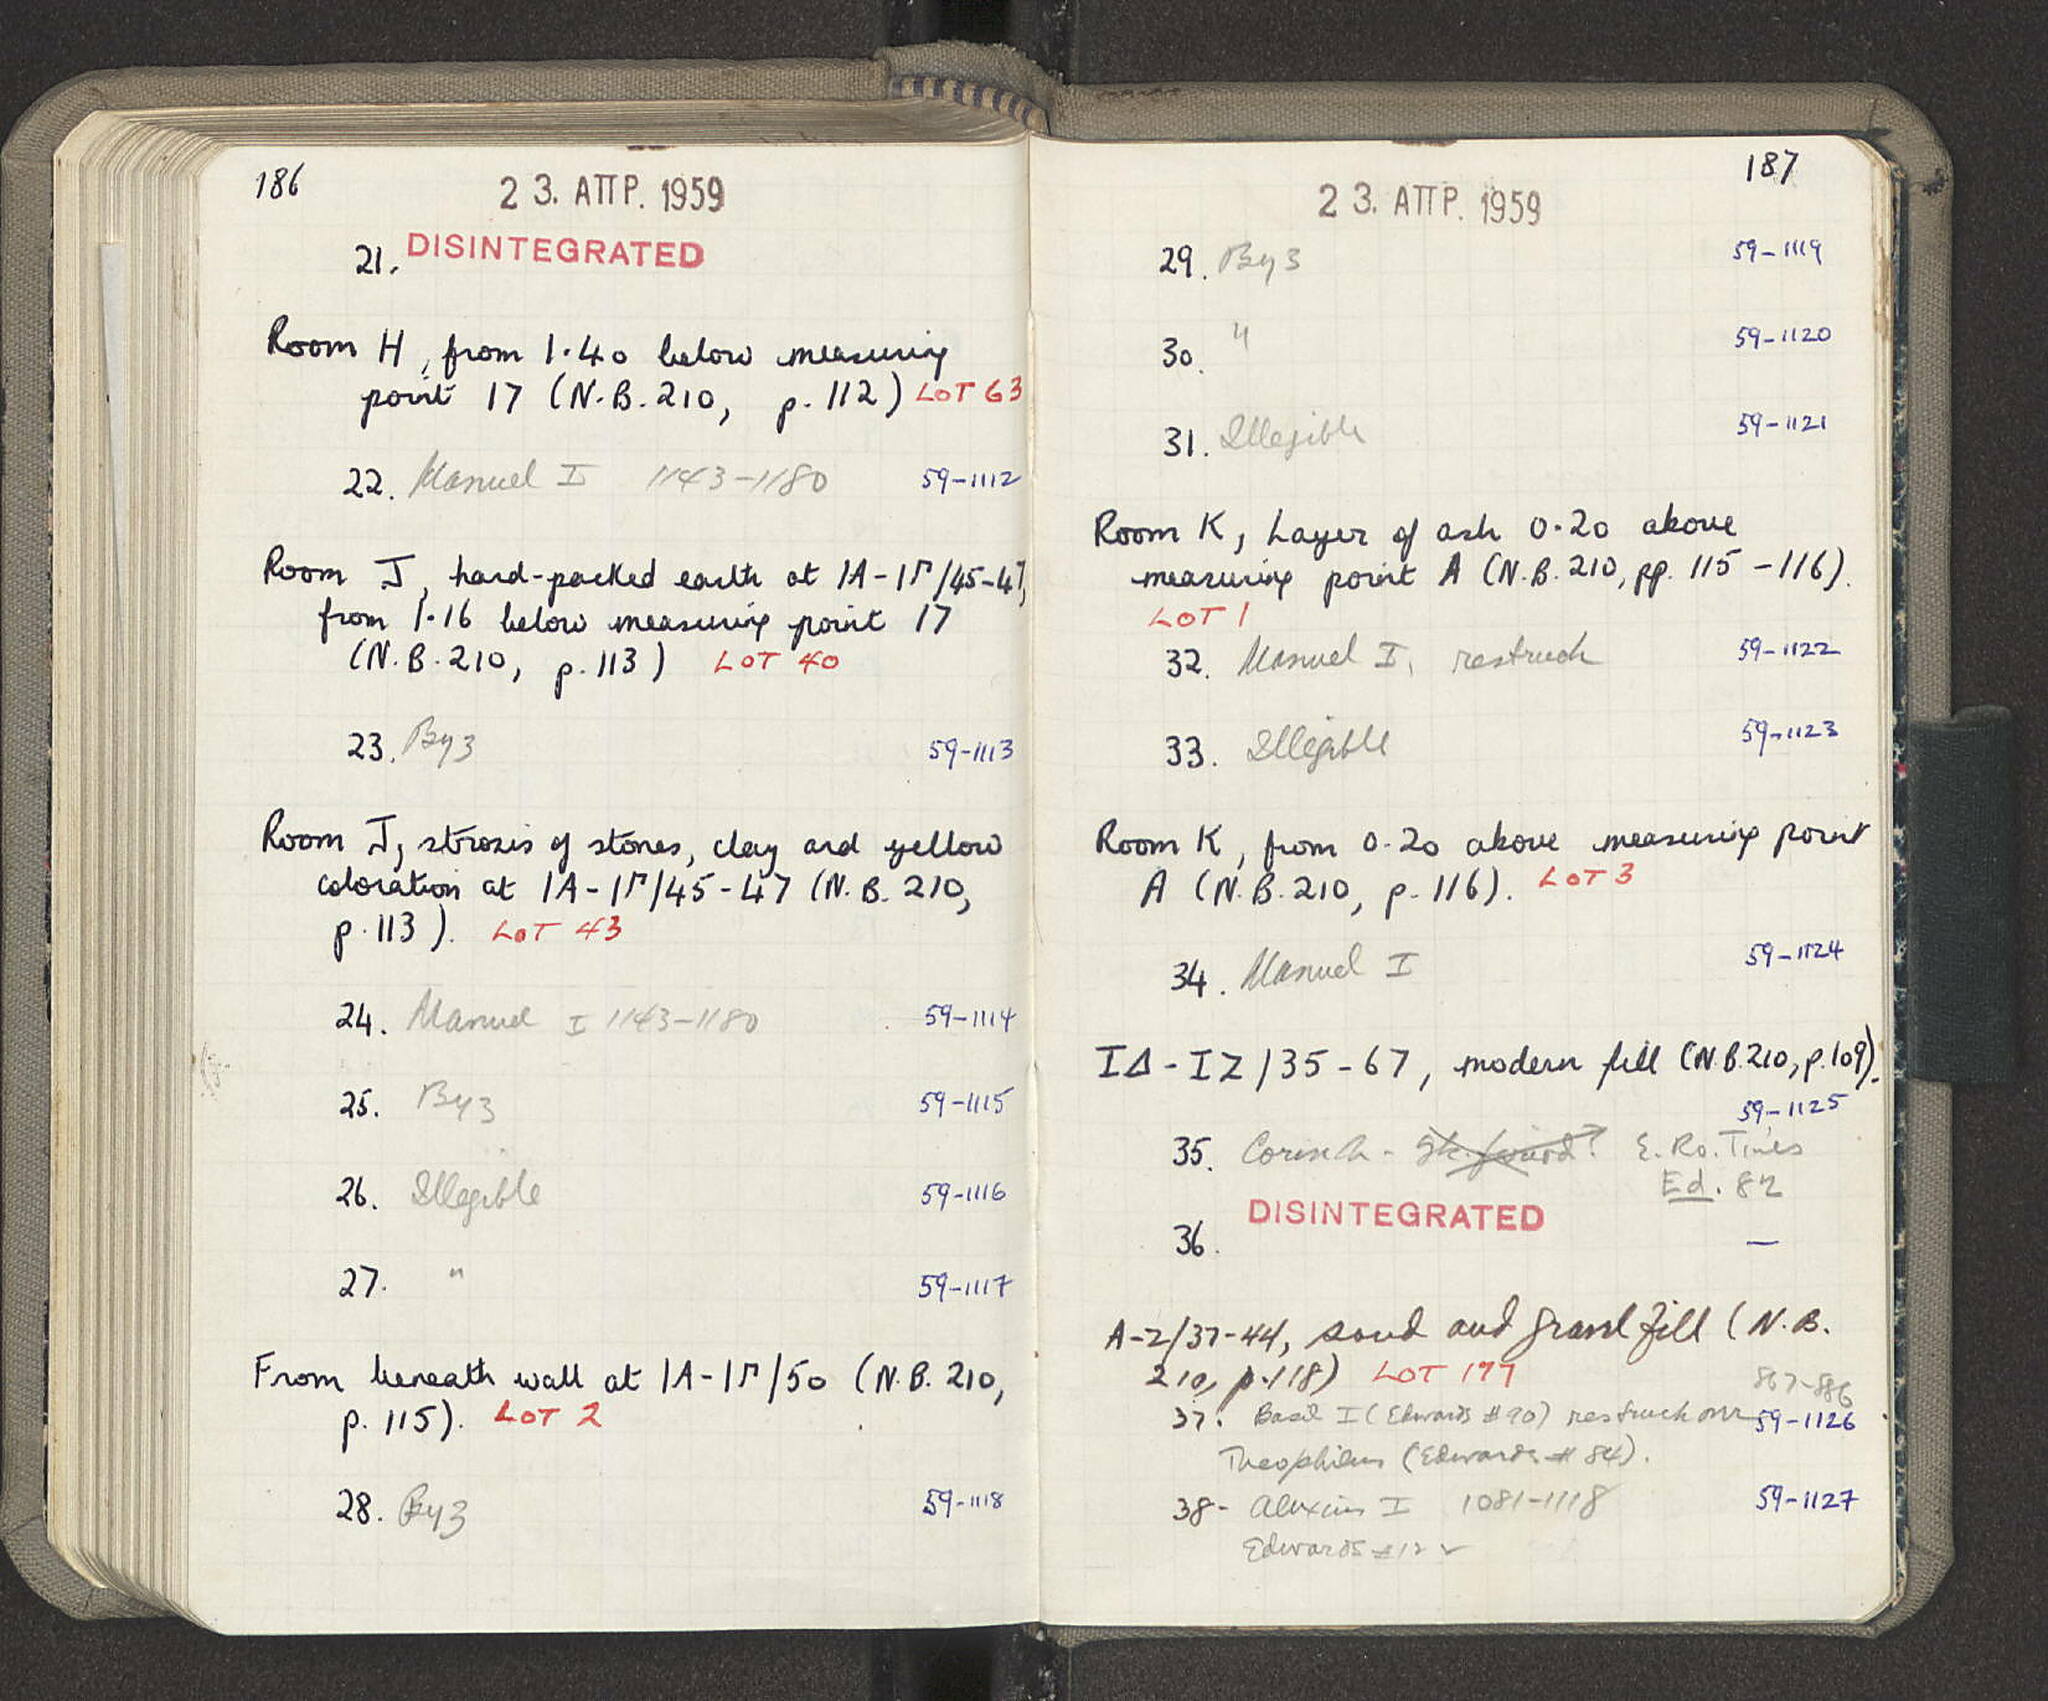 186
23. ΑΠΡ. 1959
21. DISINTEGRATED
Room H, from 1.40 below measuring
point 17 (N.B. 210, p. 112) LOT 63
22. Manuel I 1143-1180 59-1112
Room J, hard-packed earth at ΙΑ-ΙΓ/45-47,
from 1.16 below measuring point 17
(N.B. 210, p. 113) LOT 40
23. Byz 59-1113
Room J, strosis of stones, clay and yellow
coloration at ΙΑ-ΙΓ/45-47 (N.B. 210,
p. 113). LOT 43
24. Manuel I 1143-1180 59-1114
25. Byz 59-1115
26. Illegible 59-1116
27. " 59-1117
From beneath wall at ΙΑ-ΙΓ/50 (N.B. 210,
p. 115). LOT 2
28. Byz 59-1118
187
23. ΑΠΡ. 1959
29. Byz 59-1119
30. " 59-1120
31. Illegible 59-1121
Room K, Layer of ash 0.20 above
measuring point A (N.B. 210, pp. 115-116).
LOT 1
32. Manuel I, restruck 59-1122
33. Illegible 59-1123
Room K, from 0.20 above measuring point
A (N.B. 210, p. 116). LOT 3
34. Manuel I 59-1124
ΙΔ-ΙΖ/35-67, modern fill (N.B. 210, p. 109).
59-1125
35. Corinth - E. Ro. Times
Ed. 82
DISINTEGRATED
36. —
A-Z/37-44, sand and gravel fill (N.B.
210, p. 118) LOT 177
867-886
37. Basil I (Edwards #90) restruck over 59-1126
Theophilus (Edwards #84).
38- Alexius I 1081-1118 59-1127
Edwards #12 ✓